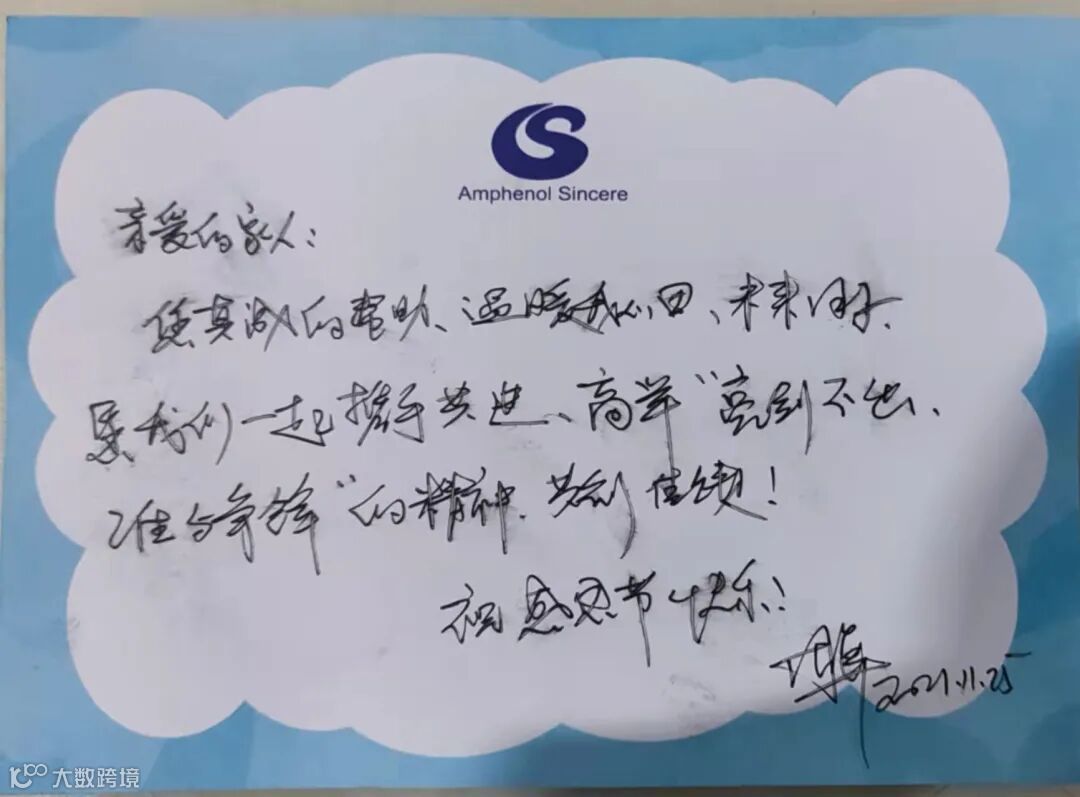 Amphenol Sincere
亲爱的家人：
您真诚的帮助、温暖我心田、未来日子、
愿我们一起携手共进、高举“亮剑不出、
谁与争锋”的精神、共创佳绩！
祝感恩节快乐！
2021.11.25
大数跨境